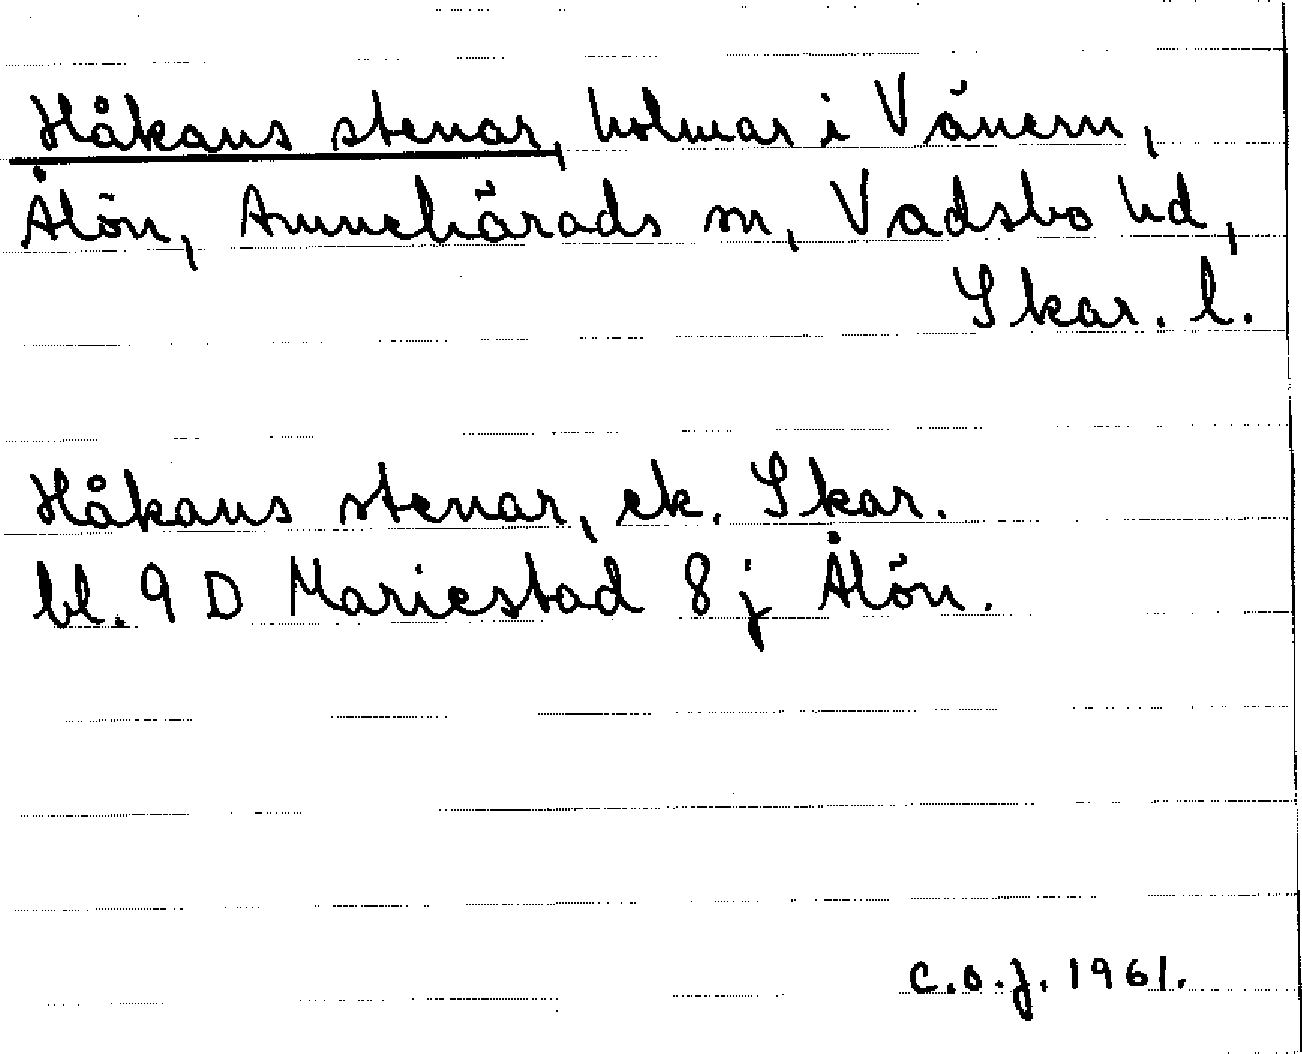 Håkans stenar, holmar i Vänern,
Ålön, Amnehärads sn, Vadsbo hd,
Skar. l.
Håkans stenar, ek. Skar.
bl. 9 D Mariestad 8 j Ålön.
C.O.J. 1961.